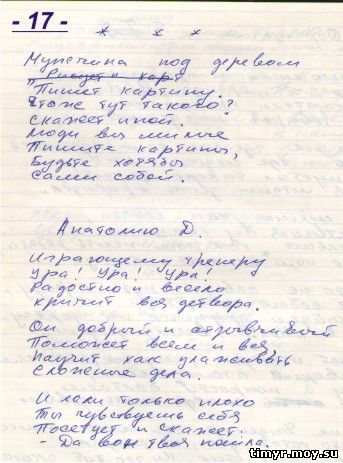 - 17 -
* * *
Мужчина под деревом
Рисует карт
Пишет картину.
Чтоже тут такого?
Скажет иной.
Люди вы милые
Пишите картины,
Будьте хотябы
Сами собой.
Анатолию Д.
Играющему тренеру
Ура! Ура! Ура!
Радостно и весело
Кричит вся детвора.
Он добрый и отзывчивый
Поможет всем и вся
Научит как улаживать
Сложные дела.
И если только плохо
Ты чувствуешь себя
Посетует и скажет:
- Да вон твоя пошла.
timyr.moy.su